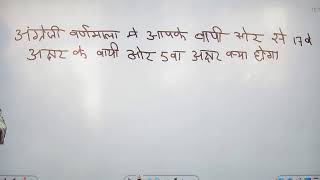 अंग्रेजी वर्णमाला मे आपके बायी ओर से 17 वे
अक्षर के बायी ओर 5 वा अक्षर क्या होगा